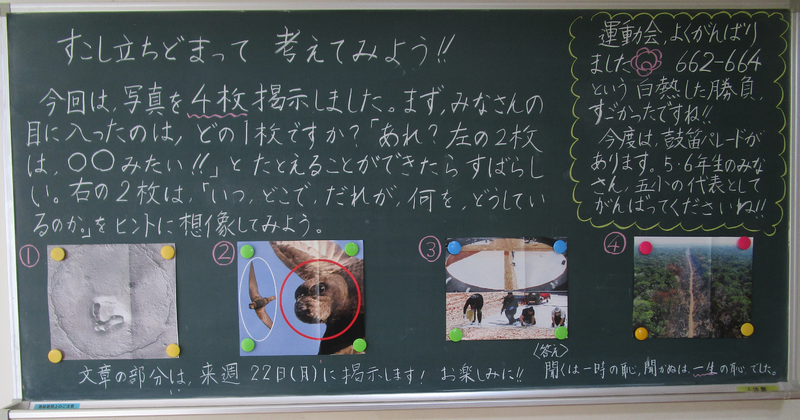 すこし立ちどまって 考えてみよう!!
今回は、写真を4枚掲示しました。まず、みなさんの
目に入ったのは、どの1枚ですか?「あれ?左の2枚
は、〇〇みたい!!」とたとえることができたらすばらし
い。右の2枚は、「いつ、どこで、だれが、何を、どうしてい
るのか。」をヒントに想像してみよう。
運動会、よくがんばり
ました 662-664
という白熱した勝負、
すごかったですね!!
今度は、鼓笛パレードが
あります。5・6年生のみな
さん、五小の代表として
がんばってくださいね!!
①
②
③
④
文章の部分は、来週 22日(月)に掲示します! お楽しみに!!
〈答え〉
聞くは一時の恥、聞かぬは、一生の恥、でした。